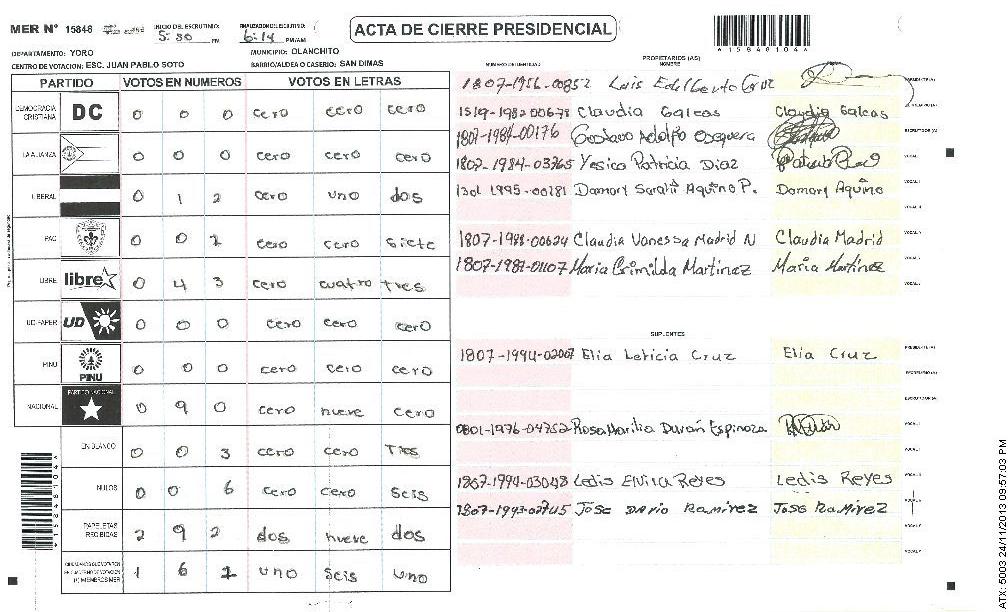 MER Nº 15848
INICIO DEL ESCRUTINIO:
5:30 PM
FINALIZACION DEL ESCRUTINIO:
6:14 PM/AM
ACTA DE CIERRE PRESIDENCIAL
A15848104A
DEPARTAMENTO: YORO
MUNICIPIO: OLANCHITO
CENTRO DE VOTACION: ESC. JUAN PABLO SOTO
BARRIO/ALDEA O CASERIO: SAN DIMAS
PARTIDO VOTOS EN NUMEROS VOTOS EN LETRAS
DEMOCRACIA CRISTIANA DC 0 0 0 cero cero cero
LA ALIANZA 0 0 0 cero cero cero
LIBERAL 0 1 2 cero uno dos
PAC 0 0 cero cero siete
LIBRE libre 0 4 3 cero cuatro Tres
UD-FAPER UD 0 0 0 cero cero cero
PINU PINU 0 0 0 cero cero cero
NACIONAL PARTIDO NACIONAL 0 9 0 cero nueve cero
EN BLANCO 0 0 3 cero cero Tres
NULOS 0 0 6 cero cero seis
PAPELETAS RECIBIDAS 2 9 2 dos nueve dos
1 6 1 uno seis uno
PROPIETARIOS (AS)
NUMERO DE IDENTIDAD NOMBRE
1807-1956-00852 Luis Edelberto Cruz PRESIDENTE (A)
1519-1982-00678 Claudia Galeas Claudia Galeas SECRETARIO (A)
1807-1984-00176 Gustavo Adolfo ESCRUTADOR (A)
1807-1984-03765 Yesica Patricia Diaz VOCAL I
1301 1995-00281 Damary Sarahi Aquino P. Damary Aquino
1807-1988-00624 Claudia Vanessa Madrid N Claudia Madrid
1807-1981-01107 Maria Grimilda Martinez Maria Martinez
SUPLENTES
1807-1994-02007 Elia Leticia Cruz Elia Cruz PRESIDENTE (A)
SECRETARIO (A)
ESCRUTADOR (A)
0801-1976-04752 Rosa Marilia Durán Espinoza
1807-1994-03048 Ledis Elvira Reyes Ledis Reyes
Jose Dario Ramirez Jose Ramirez
A15848104A
ATX: 5003 24/11/2013 09:57:03 PM